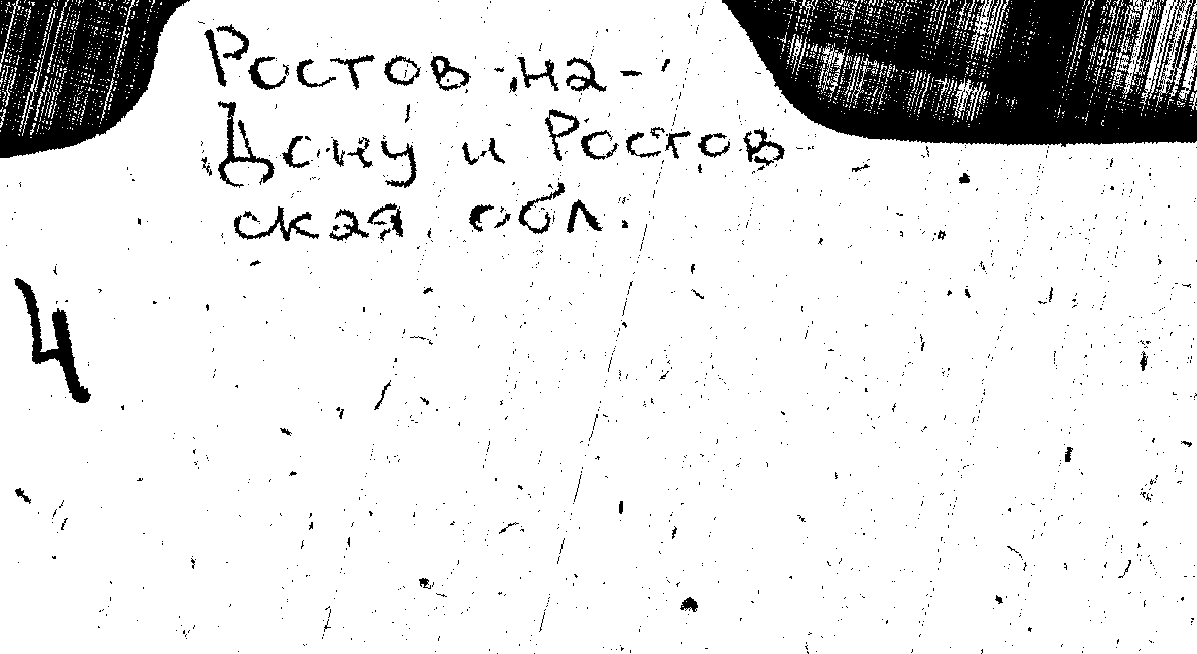 Ростов-на-
Дону и Ростов
ская обл.
4